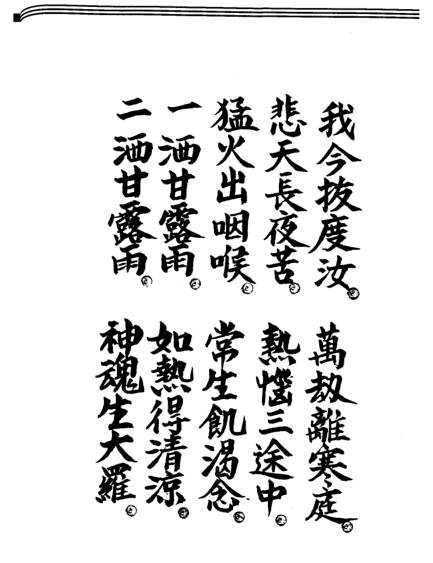 我今拔度汝
萬劫離寒庭
悲天長夜苦
熱惱三途中
猛火出咽喉
常生飢渴念
一洒甘露雨
如熱得清涼
二洒甘露雨
神魂生大羅